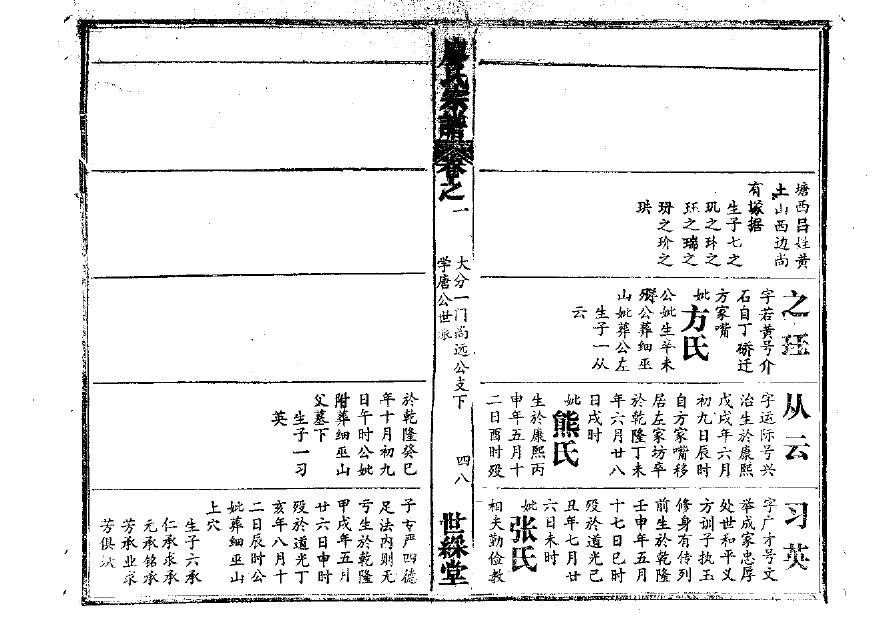 塘西吕姓黄
土山西边尚
有塚据
生子七之
玑之玤之
珏之瑞之
玡之玠之
珙
之珏
字若黄号介
石自丁硚迁
方家嘴
妣方氏
公妣生辛未
殁公葬细巫
山妣葬公左
生子一从
云
从云
字运际号兴
治生於康熙
戊戌年六月
初九日辰时
自方家嘴移
居左家坊卒
於乾隆丁未
年六月廿八
日戌时
妣熊氏
生於康熙丙
申年五月十
二日酉时殁
习英
字广才号文
举成家忠厚
处世和平义
方训子执玉
修身有传列
前生於乾隆
壬申年五月
十七日巳时
殁於道光己
丑年七月廿
六日未时
妣张氏
相夫勤俭教
廖氏宗谱
卷之一
大分一门尚远公支下
学唐公世派
四八
世綵堂
於乾隆癸巳
年十月初九
日午时公妣
附葬细巫山
父墓下
生子一习
英
子专严四德
足法内则无
亏生於乾隆
甲戌年五月
廿六日申时
殁於道光丁
亥年八月十
二日辰时公
妣葬细巫山
上穴
生子六承
仁承求承
元承铭承
芳承业求
芳俱